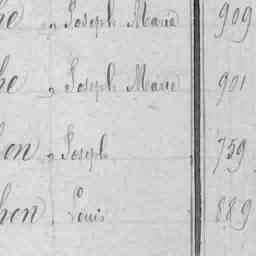 he, Joseph Marie 909
he, Joseph Marie 901
hen, Joseph 759
hen, Louis 889